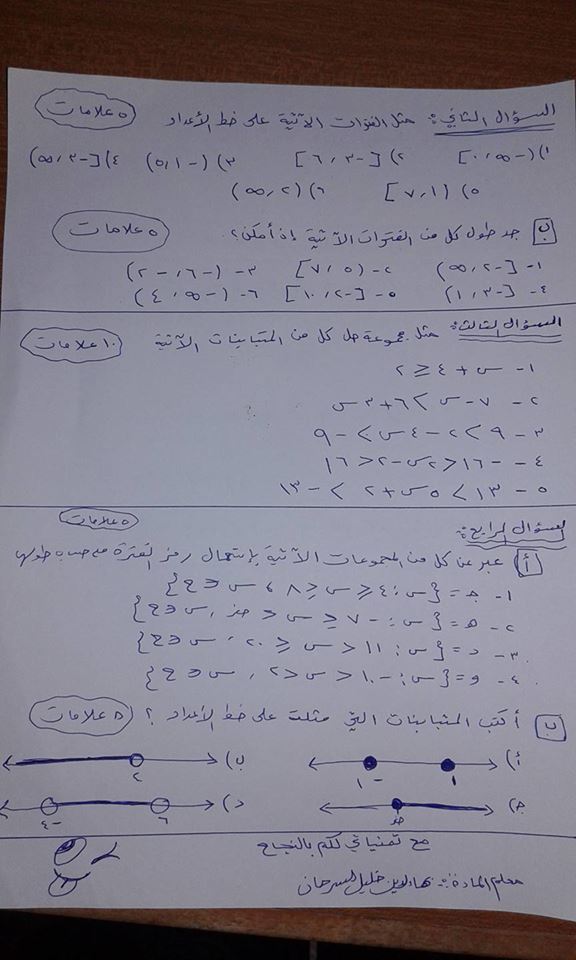 السؤال الثاني: مثل الفترات الآتية على خط الأعداد ٥ علامات
١) (-∞، ٠] ٢) [-٣، ٦] ٣) (-١، ٥) ٤) [-٣، ∞)
٥) (١، ٧] ٦) (٢، ∞)
ب جد طول كل من الفترات الآتية إذ أمكن؟ ٥ علامات
١- [-٢، ∞) ٢- (٥، ٧] ٣- (-٦، -٢)
٤- [-٣، ١) ٥- [-٢، ١٠] ٦- (-∞، ٤)
السؤال الثالث: مثل مجموعة حل كل من المتباينات الآتية ١٠ علامات
١- س + ٤ ≥ ٢
٢- ٧ - س > ٦ + ٣ س
٣- ٩ > ٢ - ٤ س > - ٩
٤- - ١٦ < ٢ س - ٢ < ١٦
٥- ١٣ > ٥ س + ٢ > - ١٣
السؤال الرابع: ٥ علامات
أ عبر عن كل من المجموعات الآتية بإستعمال رمز الفترة مع حساب طولها
١- جـ = {س : ٤ ≤ س ≤ ٨ ، س ∈ ح}
٢- هـ = {س : - ٧ ≤ س < صفر ، س ∈ ح}
٣- د = {س : ١١ < س ≤ ٢٠ ، س ∈ ح}
٤- و = {س : - ١٠ < س < ٢ ، س ∈ ح}
ب أكتب المتباينات التي مثلت على خط الأعداد ؟ ٨ علامات
أ) -١ ١ ب) ٢
جـ) صفر د) -٤ ٦
مع تمنياتي لكم بالنجاح
معلم المادة :- بهاءالدين خليل السرحان